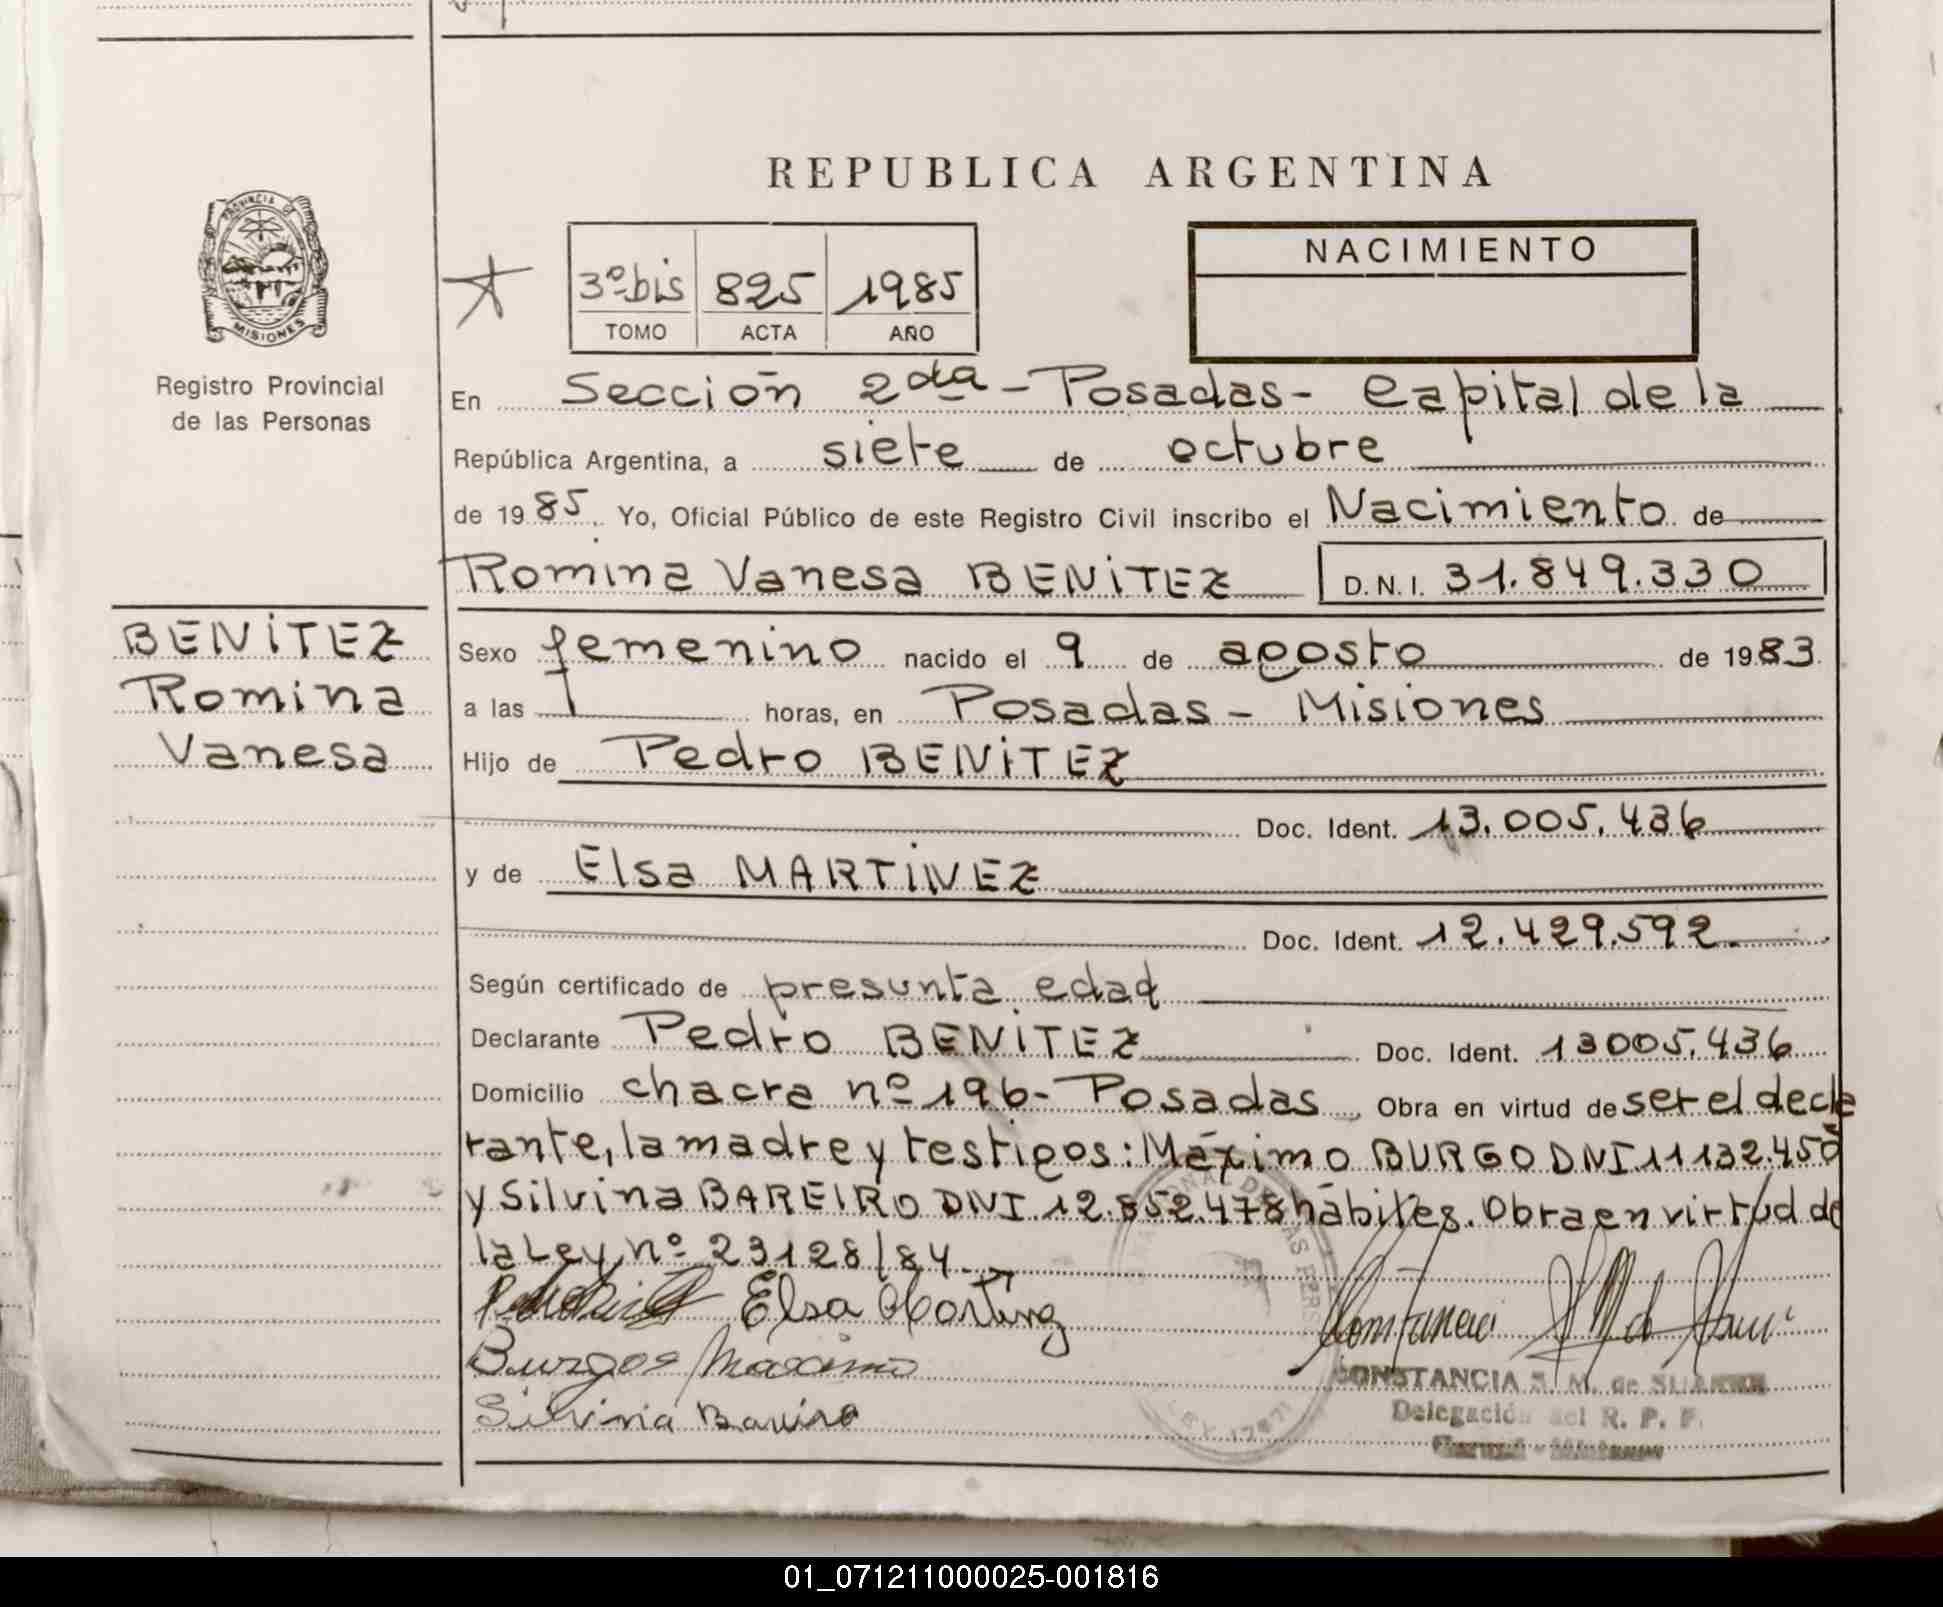 REPUBLICA ARGENTINA
PROVINCIA D
MISIONES
Registro Provincial
de las Personas
3º bis 825 1985
TOMO ACTA AÑO
NACIMIENTO
En Sección 2da - Posadas - Capital de la
República Argentina, a siete de octubre
de 1985. Yo, Oficial Público de este Registro Civil inscribo el Nacimiento de
Romina Vanesa BENITEZ D.N.I. 31.849.330
BENITEZ
Romina
Vanesa
Sexo femenino nacido el 9 de agosto de 1983.
a las horas, en Posadas - Misiones
Hijo de Pedro BENITEZ
Doc. Ident. 13.005.436
y de Elsa MARTINEZ
Doc. Ident. 12.429.592.
Según certificado de presunta edad
Declarante Pedro BENITEZ Doc. Ident. 13005.436
Domicilio chacra nº 196 - Posadas, Obra en virtud de ser el decla
rante, la madre y testigos: Máximo BURGO DNI 11132.450
y Silvina BAREIRO DNI 12.852.478 hábiles. Obra en virtud de
la Ley nº 23128/84.
Elsa Martinez
Burgos Maximo
Silvina Bareiro
CONSTANCIA S. M. de
Delegación del R. P. P.
LEY 17671
01_071211000025-001816